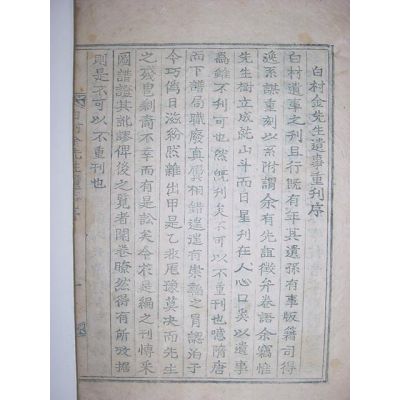 白村金先生遺事重刊序
白村遺事之刊且行既有年其遺孫有事版籍司得
逸系謀重刻以系附謂余有先誼徵弁卷語余竊惟
先生樹立成就山斗而日星刊在人心口矣遺事
爲雖不刊可也然既刊矣不可以不重刊也噫隋唐
而下譜局職廢眞贋相錯遑遑有崇韜之冒認泊子
今巧僞日滋紛然雜出甲是乙非厖豫莫决而先生
之殘里剩裔不幸而有是訟矣今來是編之刊愽采
國譜證其訛謬俾後之覽者開卷瞭然得有所攷据
則是不可以不重刊也
白村金先生遺事 序
一